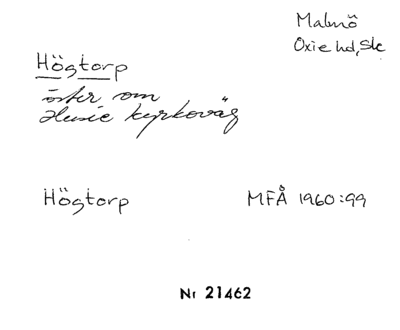 Malmö
Oxie hd, Sk
Högtorp
öster om
Husie kyrkoväg
Högtorp
MFÅ 1960:99
Nr 21462